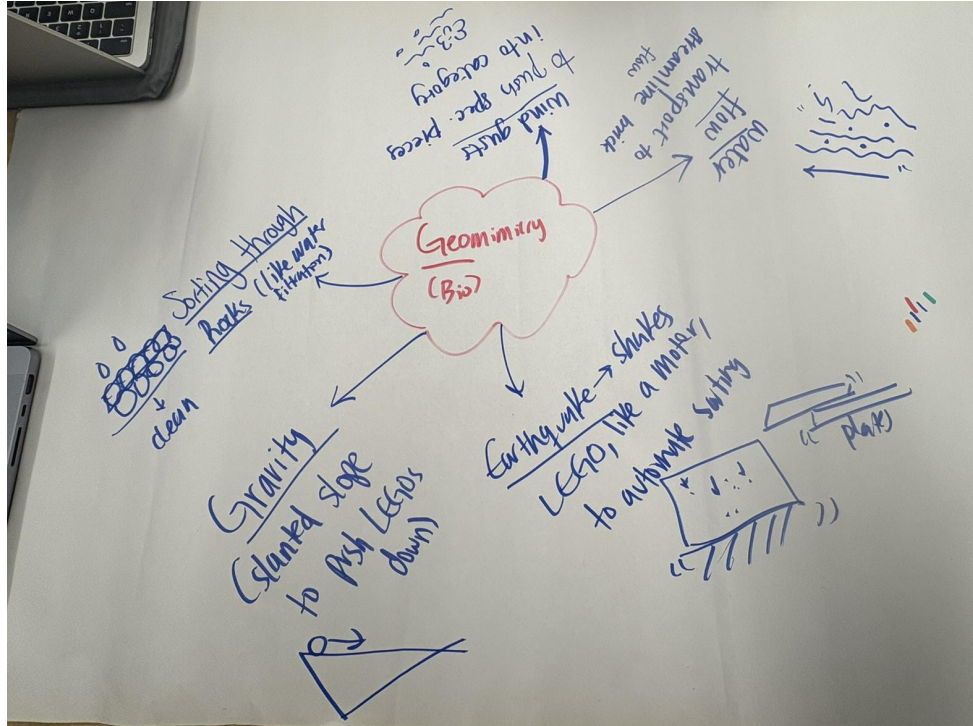 Geomimicry
(Bio)
Wind gusts
to push spec. pieces
into category
Water
flow
transport to
streamline brick
flow
Sorting through
Rocks (like water
filtration)
clean
Gravity
(slanted slope
to push LEGOs
down)
Earthquake → shakes
LEGO, like a moter,
to automate sorting
plates